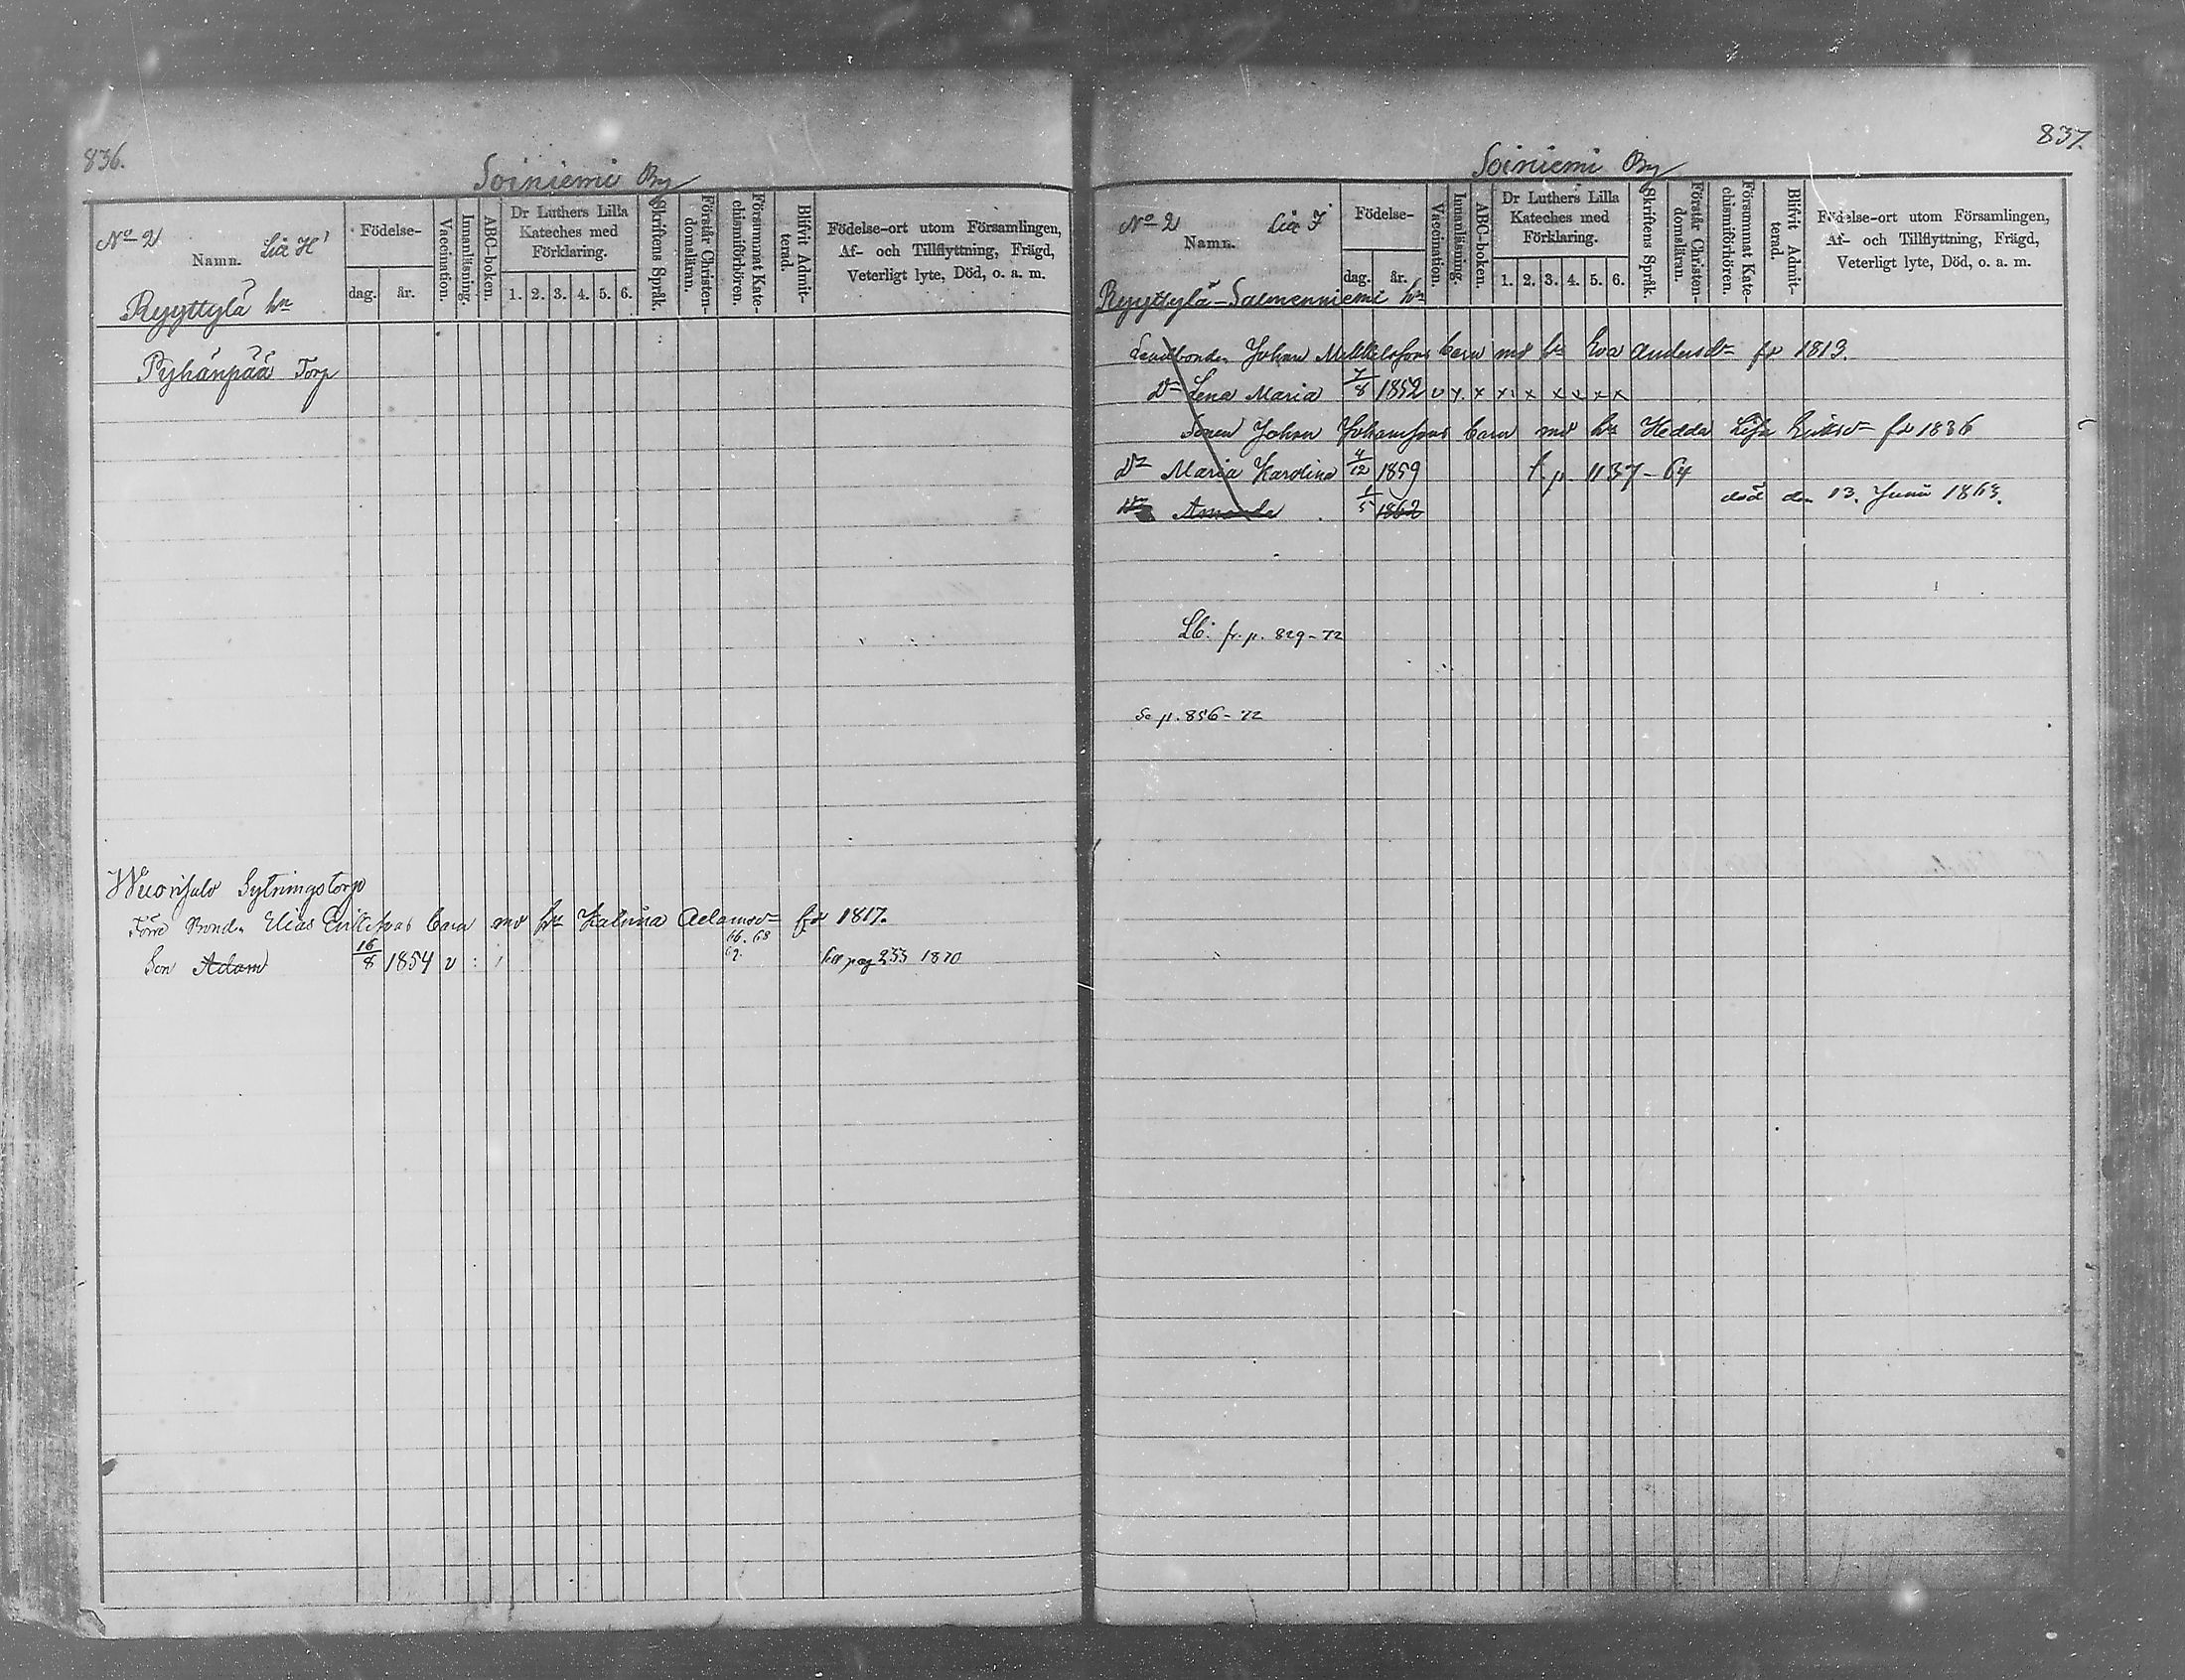 836.
Soiniemi By
No 2 Namn. Lit H
Födelse-
dag. år.
Vaccination.
Innanläsning.
ABC-boken.
Dr Luthers Lilla Kateches med Förklaring.
1. 2. 3. 4. 5. 6.
Skriftens Språk.
Förstår Christendomsläran.
Försummat Katechismiförhören.
Blifvit Admitterad.
Födelse-ort utom Församlingen,
Af- och Tillflyttning, Frägd,
Veterligt lyte, Död, o. a. m.
Ryyttylä hn
Pyhänpää Torp
Sytningstorp
Förre Bond. Elias Erikssons barn md hu Katrina Adamsd fd 1817.
66. 68
Son Adam 16/8 1854 v 69. till pag 233 1870
837.
Soiniemi By
No 2 Namn. Lit I
Födelse-
dag. år.
Vaccination.
Innanläsning.
ABC-boken.
Dr Luthers Lilla Kateches med Förklaring.
1. 2. 3. 4. 5. 6.
Skriftens Språk.
Förstår Christendomsläran.
Försummat Katechismiförhören.
Blifvit Admitterad.
Födelse-ort utom Församlingen,
Af- och Tillflyttning, Frägd,
Veterligt lyte, Död, o. a. m.
Ryyttylä-Salmenniemi hn
Landbonden Johan Mikkelssons barn md hu Eva Andersdr fd 1813.
Dr Lena Maria 7/8 1852 v x x x x x x x x
Sonen Johan Johanssons barn md hu Hedda Lisa Eriksdr fd 1836
Dr Maria Karolina 4/12 1859 t. p. 1137-64
Amanda 1/5 1862 död den 13. Junii 1863.
Lb: fr. p. 829-72
Se p. 856-72